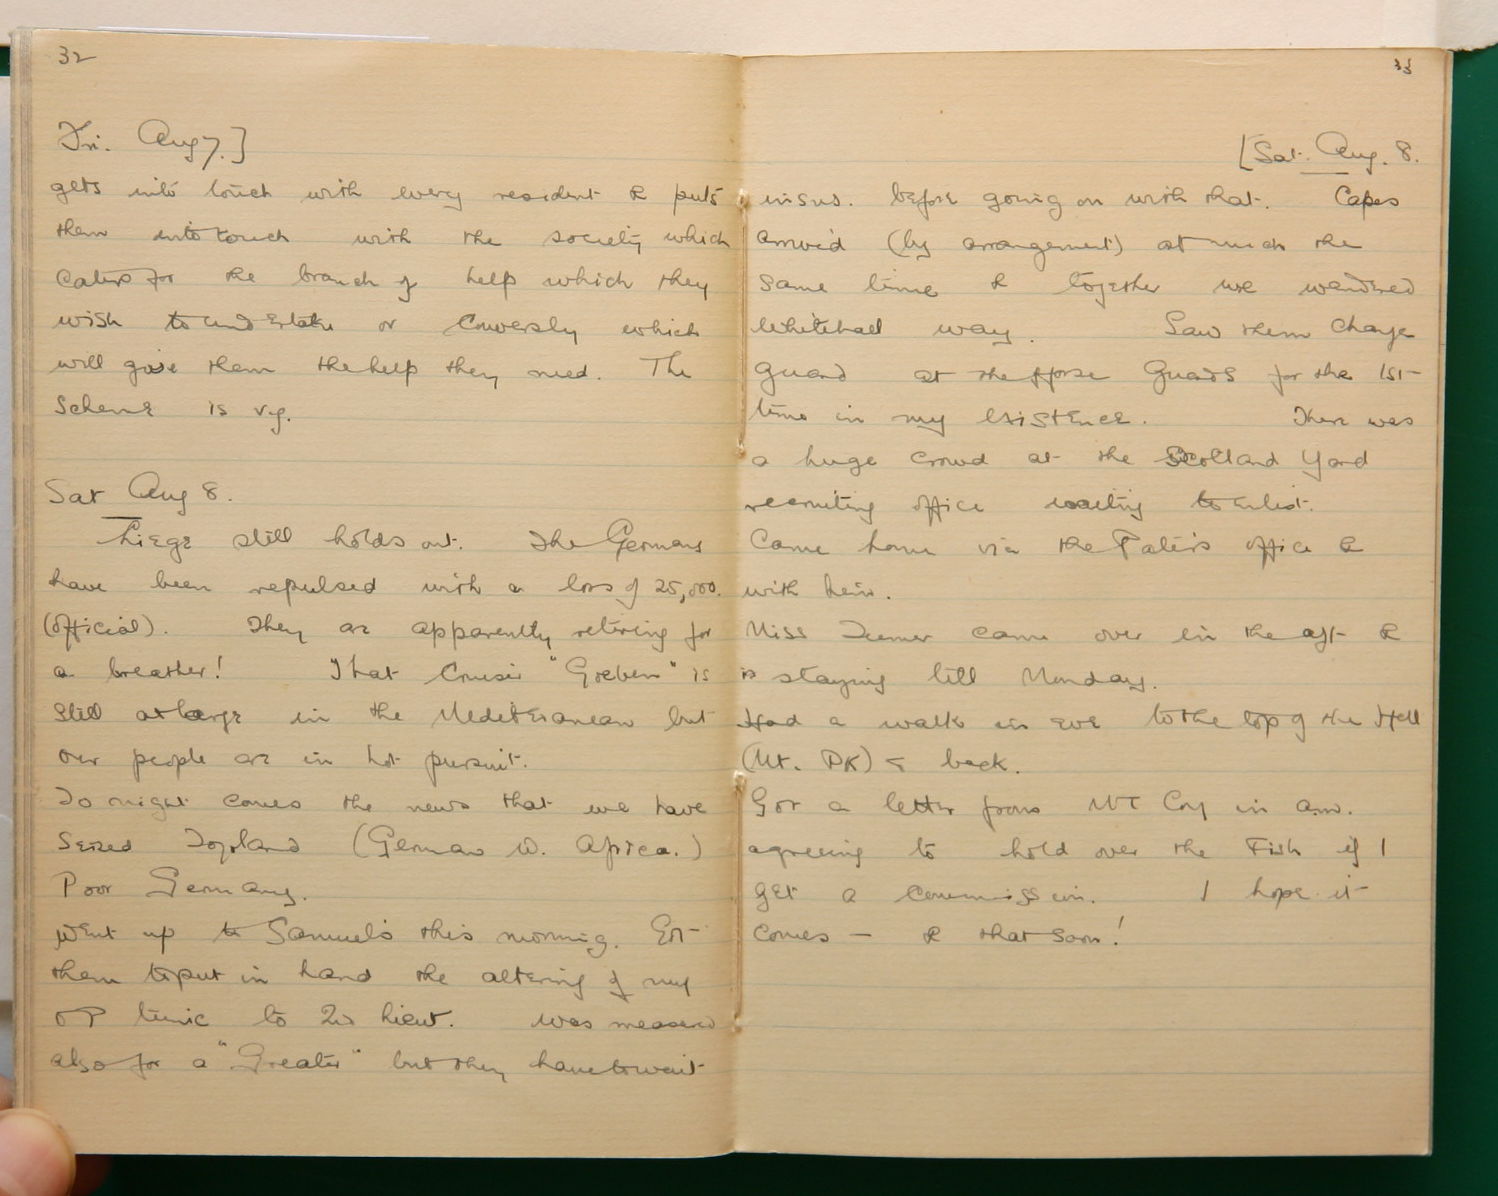 32
Fri. Aug 7.]
gets into touch with every resident & puts
them into touch with the society which
caters for the branch of help which they
wish to undertake or conversly which
will give them the help they need. The
scheme is v.g.
Sat Aug 8.
Liege still holds out. The Germans
have been repulsed with a loss of 25,000.
(official). They are apparently retiring for
a breather! That Cruiser "Goeben" is
still at large in the Mediteranean but
our people are in hot pursuit.
To night comes the news that we have
seized Togoland (German W. Africa.)
Poor Germany.
Went up to Samuels this morning. Got
them to put in hand the altering of my
OP tunic to 2nd Lieut. Was measured
also for a "Greater" but they have to wait
33
[Sat. Aug. 8.
insns. before going on with that. Capes
arrived (by arrangement) at much the
same time & together we wandered
Whitehall way. Saw them change
guard at the Horse Guards for the 1st
time in my existence. There was
a huge crowd at the Scotland Yard
recruiting office waiting to enlist.
Came home via the Pater's office &
with him.
Miss Turner came over in the aft &
is staying till Monday.
Had a walk in eve to the top of the Hill
(Mt. Pk) & back.
Got a letter from McCoy in a.m.
agreeing to hold over the Fish if I
get a commission. I hope it
comes — & that soon!